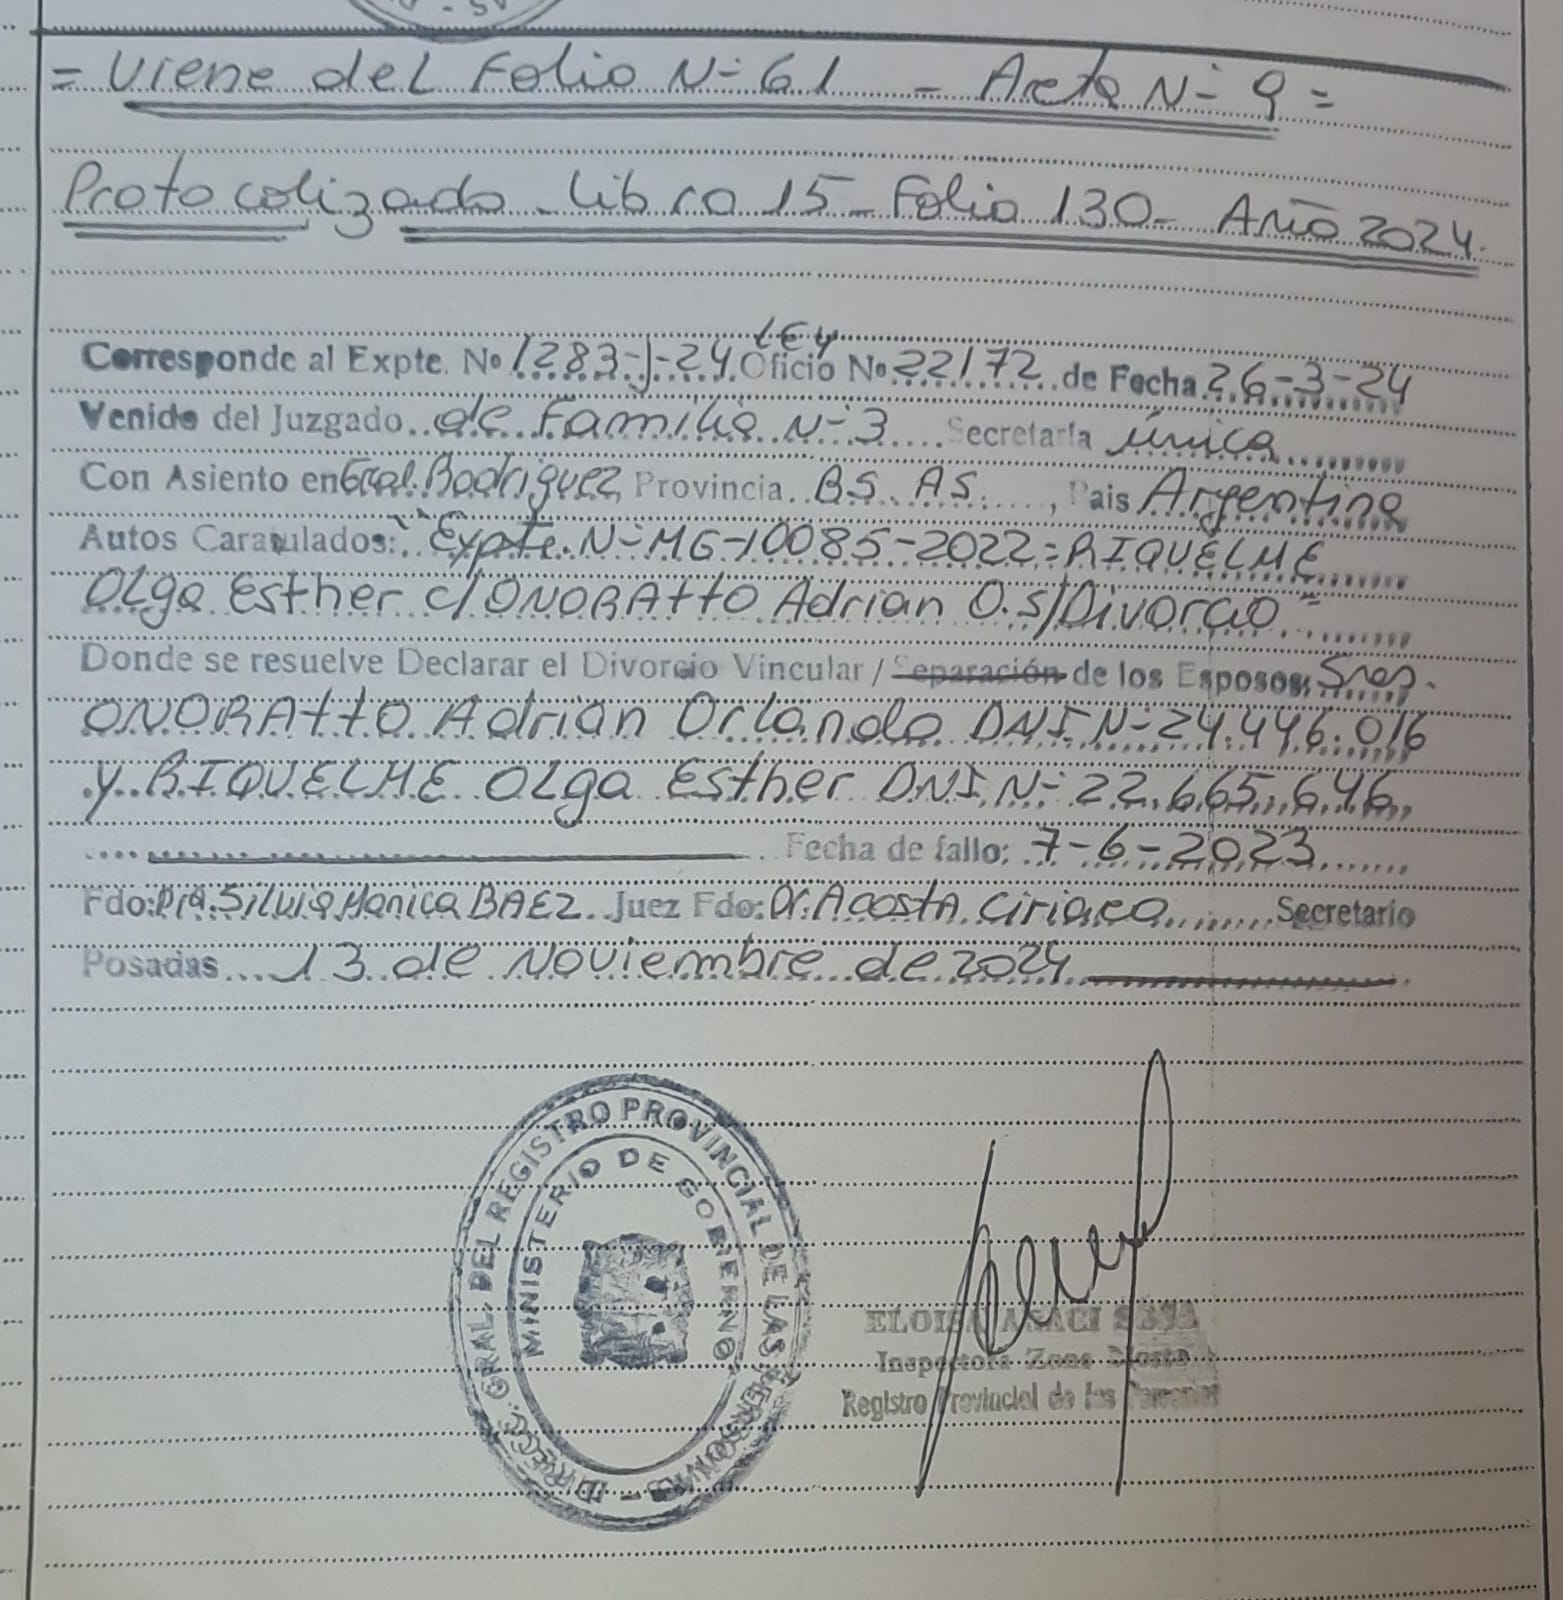 = Viene del Folio N° 61 - Acta N° 9 =
Protocolizado - Libro 15 - Folio 130 - Año 2024.
Corresponde al Expte. No 1283-J-24 Oficio LEY No 22172 de Fecha 26-3-24
Venido del Juzgado de Familia N° 3 Secretaría única
Con Asiento en Gral. Rodriguez Provincia BS. AS. , Pais Argentina
Autos Caratulados: "Expte. N° MG-10085-2022 = RIQUELME
Olga Esther c/ ONORAttO Adrian O. s/Divorcio"
Donde se resuelve Declarar el Divorcio Vincular / Separación de los Esposos: Sres.
ONORAttO Adrian Orlando DNI N° 24.446.016
y RIQUELME Olga Esther DNI N° 22.665.646
Fecha de fallo: 7-6-2023
Fdo: Dra. Silvia Monica BAEZ Juez Fdo: Dr. Acosta Ciriaco Secretario
Posadas 13 de Noviembre de 2024
DIRECC. GRAL. DEL REGISTRO PROVINCIAL DE LAS PERSONAS -
MINISTERIO DE GOBIERNO
ELOISA
Inspectora Zona Norte
Registro Provincial de las Personas